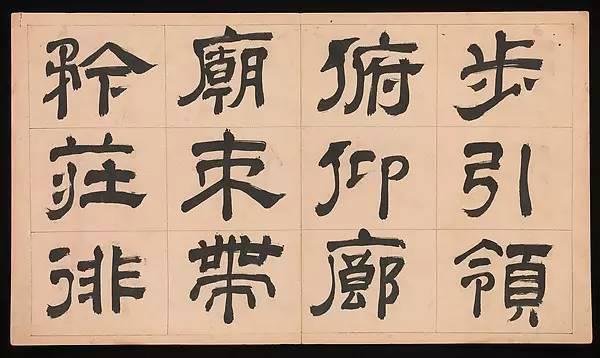 步引領
俯仰廊
廟束帶
矜莊徘